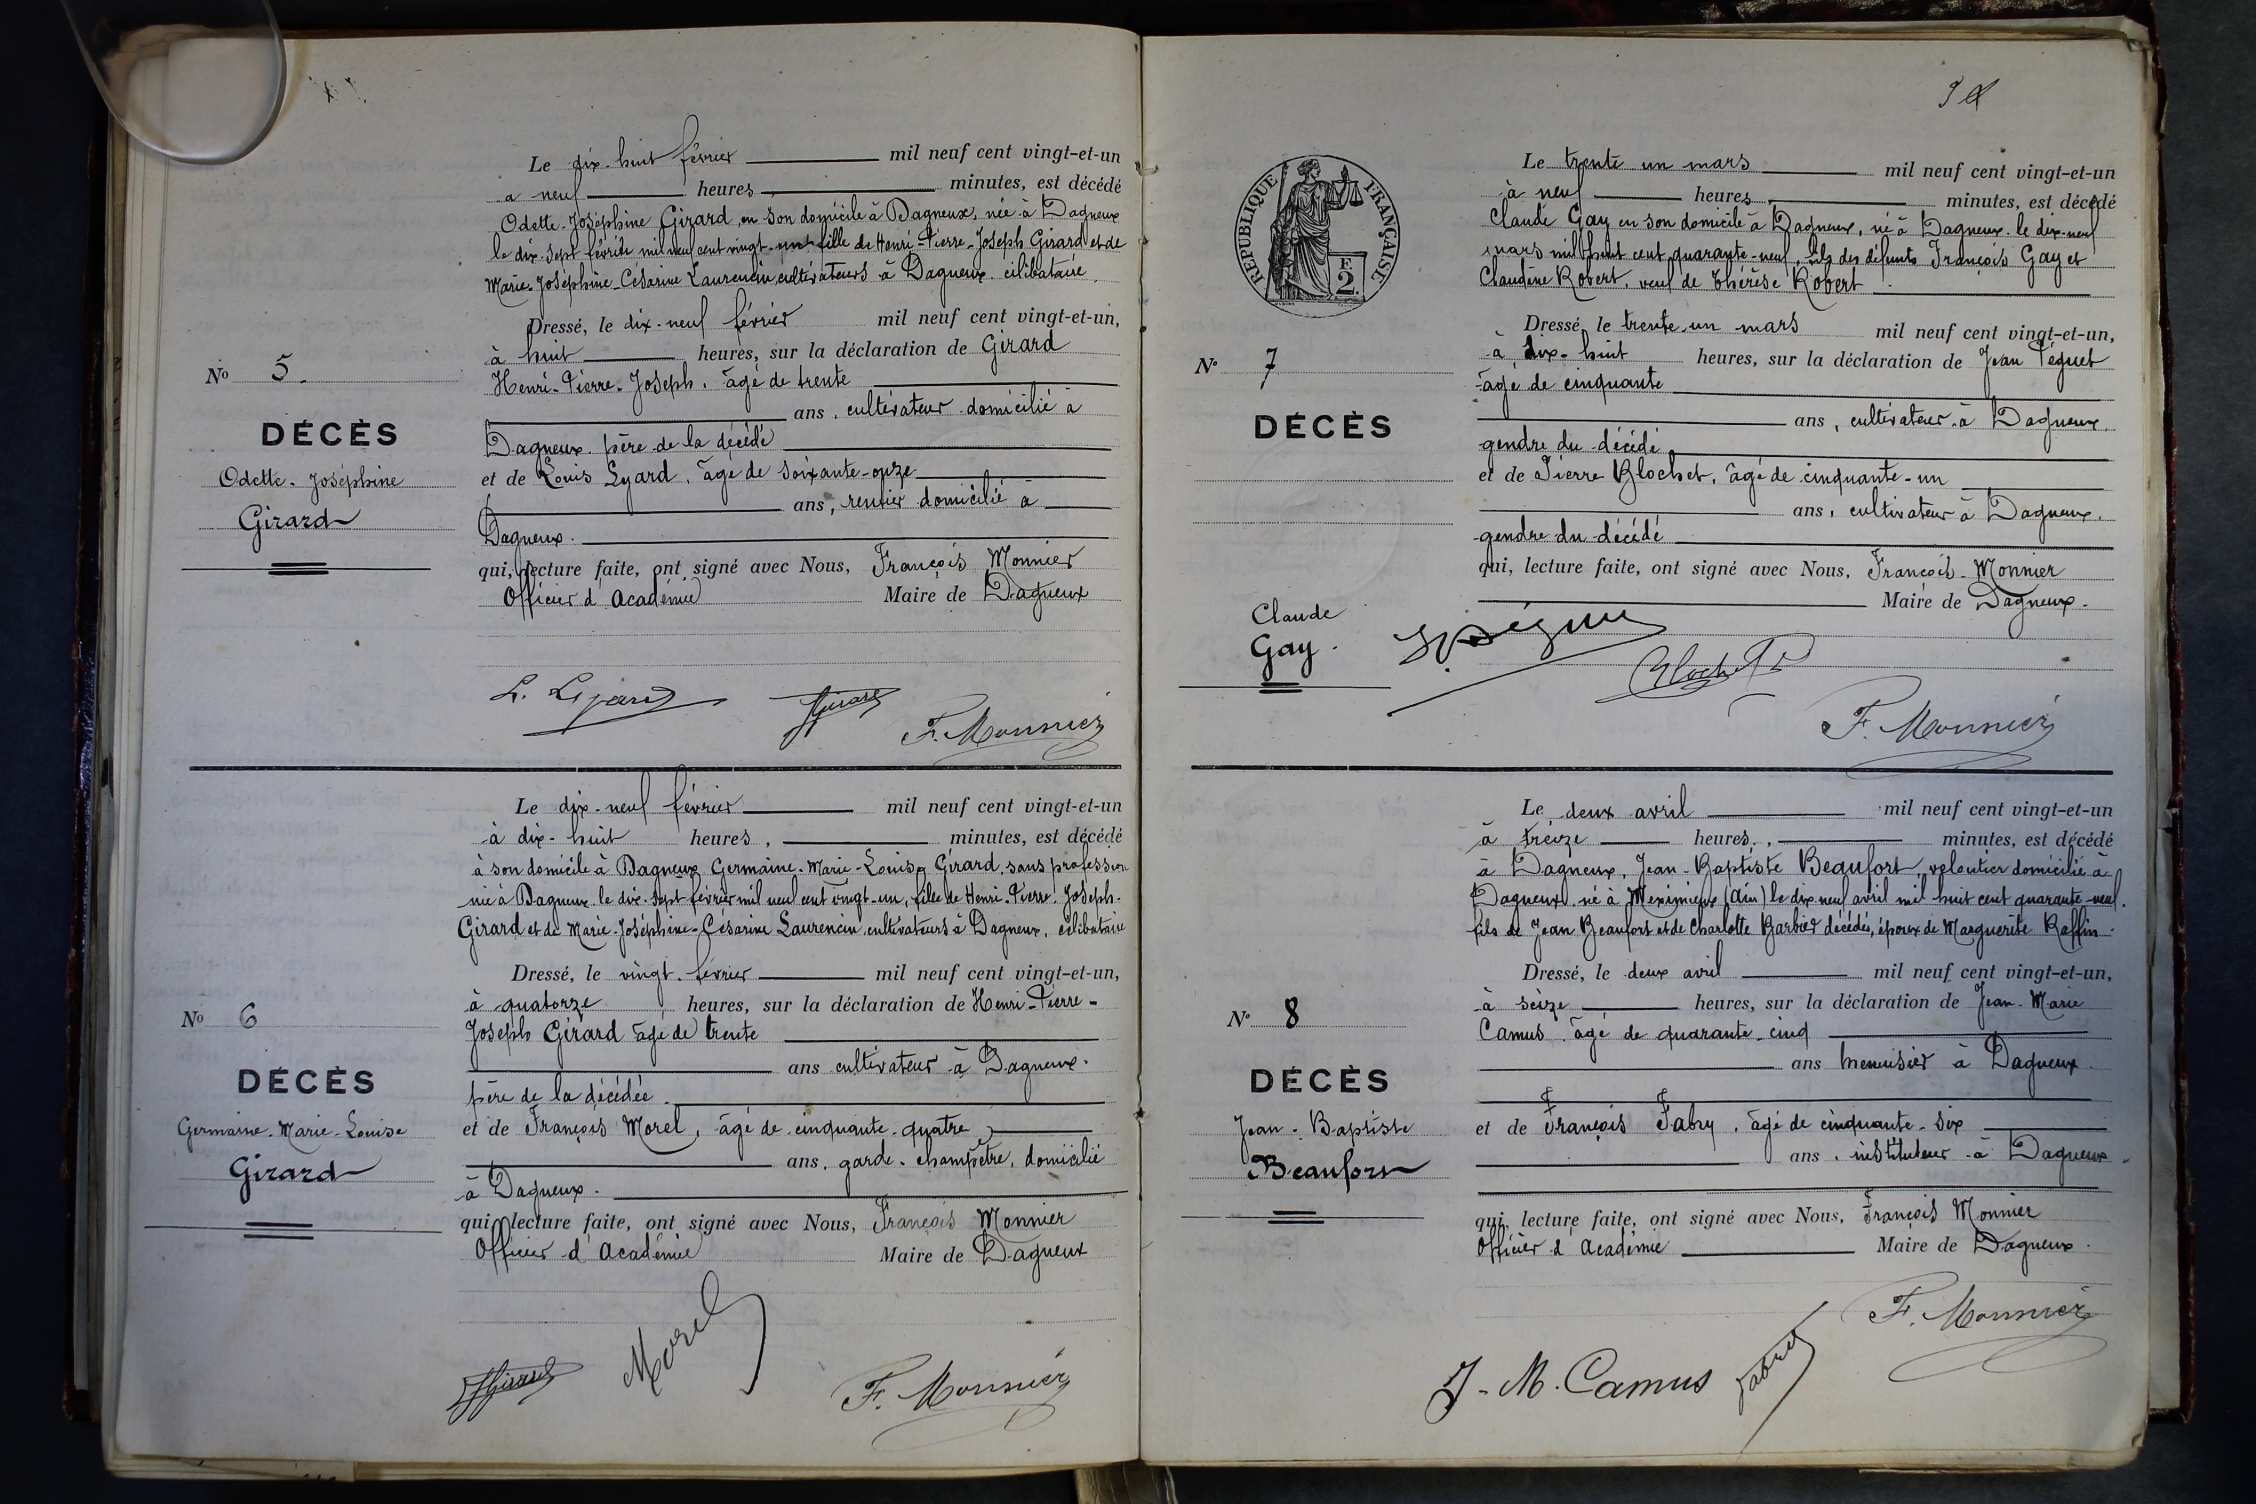 Le dix-huit février mil neuf cent vingt-et-un
a neuf heures, minutes, est décédé
Odette-Joséphine Girard, en son domicile à Dagneux, née à Dagneux
le dix-sept février mil neuf cent vingt-un fille de Henri-Pierre-Joseph Girard et de
Marie-Joséphine-Césarine Laurencin, cultivateurs à Dagneux. célibataire.
Dressé, le dix-neuf février mil neuf cent vingt-et-un,
à huit heures, sur la déclaration de Girard
Henri-Pierre-Joseph, âgé de trente
ans, cultivateur domicilié à
Dagneux. père de la décédé
et de Louis Lyard, âgé de soixante-onze
ans, rentier domicilié à
Dagneux.
qui, lecture faite, ont signé avec Nous, François Monnier
Officier d'Académie Maire de Dagneux
No 5.
DÉCÈS
Odette-Joséphine
Girard
L. Lyard Girard F. Monnier
Le dix-neuf février mil neuf cent vingt-et-un
à dix-huit heures, minutes, est décédé
à son domicile à Dagneux Germaine-Marie-Louise Girard, sans profession
née à Dagneux le dix-sept février mil neuf cent vingt-un, fille de Henri-Pierre-Joseph-
Girard et de Marie-Joséphine-Césarine Laurencin, cultivateurs à Dagneux, célibataire
Dressé, le vingt-février mil neuf cent vingt-et-un,
à quatorze heures, sur la déclaration de Henri-Pierre-
Joseph Girard âgé de trente
ans cultivateur à Dagneux.
père de la décédée.
et de François Morel, âgé de cinquante-quatre
ans, garde-champêtre, domicilié
à Dagneux.
qui, lecture faite, ont signé avec Nous, François Monnier
Officier d'Académie Maire de Dagneux
No 6
DÉCÈS
Germaine-Marie-Louise
Girard
Girard Morel F. Monnier
RÉPUBLIQUE FRANÇAISE
F.
2.
Le trente un mars mil neuf cent vingt-et-un
à neuf heures, minutes, est décédé
Claude Gay en son domicile à Dagneux, né à Dagneux le dix-neuf
mars mil huit cent quarante-neuf, fils des défunts François Gay et
Claudine Robert, veuf de Thérèse Robert
Dressé, le trente-un mars mil neuf cent vingt-et-un,
à dix-huit heures, sur la déclaration de Jean Péguet
âgé de cinquante
ans, cultivateur à Dagneux.
gendre du décédé
et de Pierre Blochet, âgé de cinquante-un
ans, cultivateur à Dagneux.
gendre du décédé
qui, lecture faite, ont signé avec Nous, François-Monnier
Maire de Dagneux.
No 7
DÉCÈS
Claude
Gay.
F. Monnier
Le deux avril mil neuf cent vingt-et-un
à treize heures, minutes, est décédé
à Dagneux, Jean-Baptiste Beaufort, veloutier domicilié à
Dagneux né à Meximieux (Ain) le dix-neuf avril mil huit cent quarante-neuf.
fils de Jean Beaufort et de Charlotte Barbier décédés, époux de Marguerite Raffin.
Dressé, le deux avril mil neuf cent vingt-et-un,
à seize heures, sur la déclaration de Jean-Marie
Camus âgé de quarante-cinq
ans menuisier à Dagneux.
et de François Fabry, âgé de cinquante-six
ans, instituteur à Dagneux.
qui, lecture faite, ont signé avec Nous, François Monnier
Officier d'Académie Maire de Dagneux.
No 8
DÉCÈS
Jean-Baptiste
Beaufort
F. Monnier
J-M. Camus Fabry